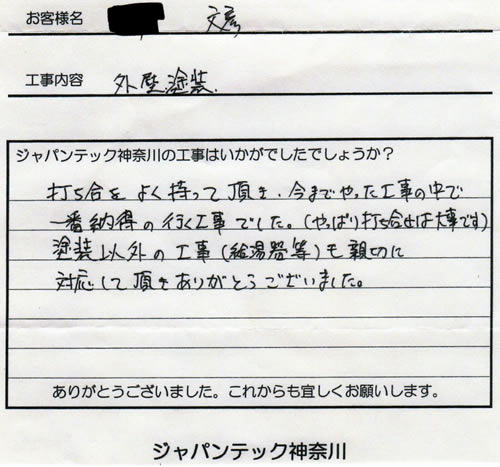 お客様名 文彦
工事内容 外壁塗装.
ジャパンテック神奈川の工事はいかがでしたでしょうか?
打ち合をよく持って頂き、今までやった工事の中で
一番納得の行く工事でした。(やっぱり打ち合せは大事です)
塗装以外の工事(給湯器等)も親切に
対応して頂きありがとうございました。
ありがとうございました。これからも宜しくお願いします。
ジャパンテック神奈川